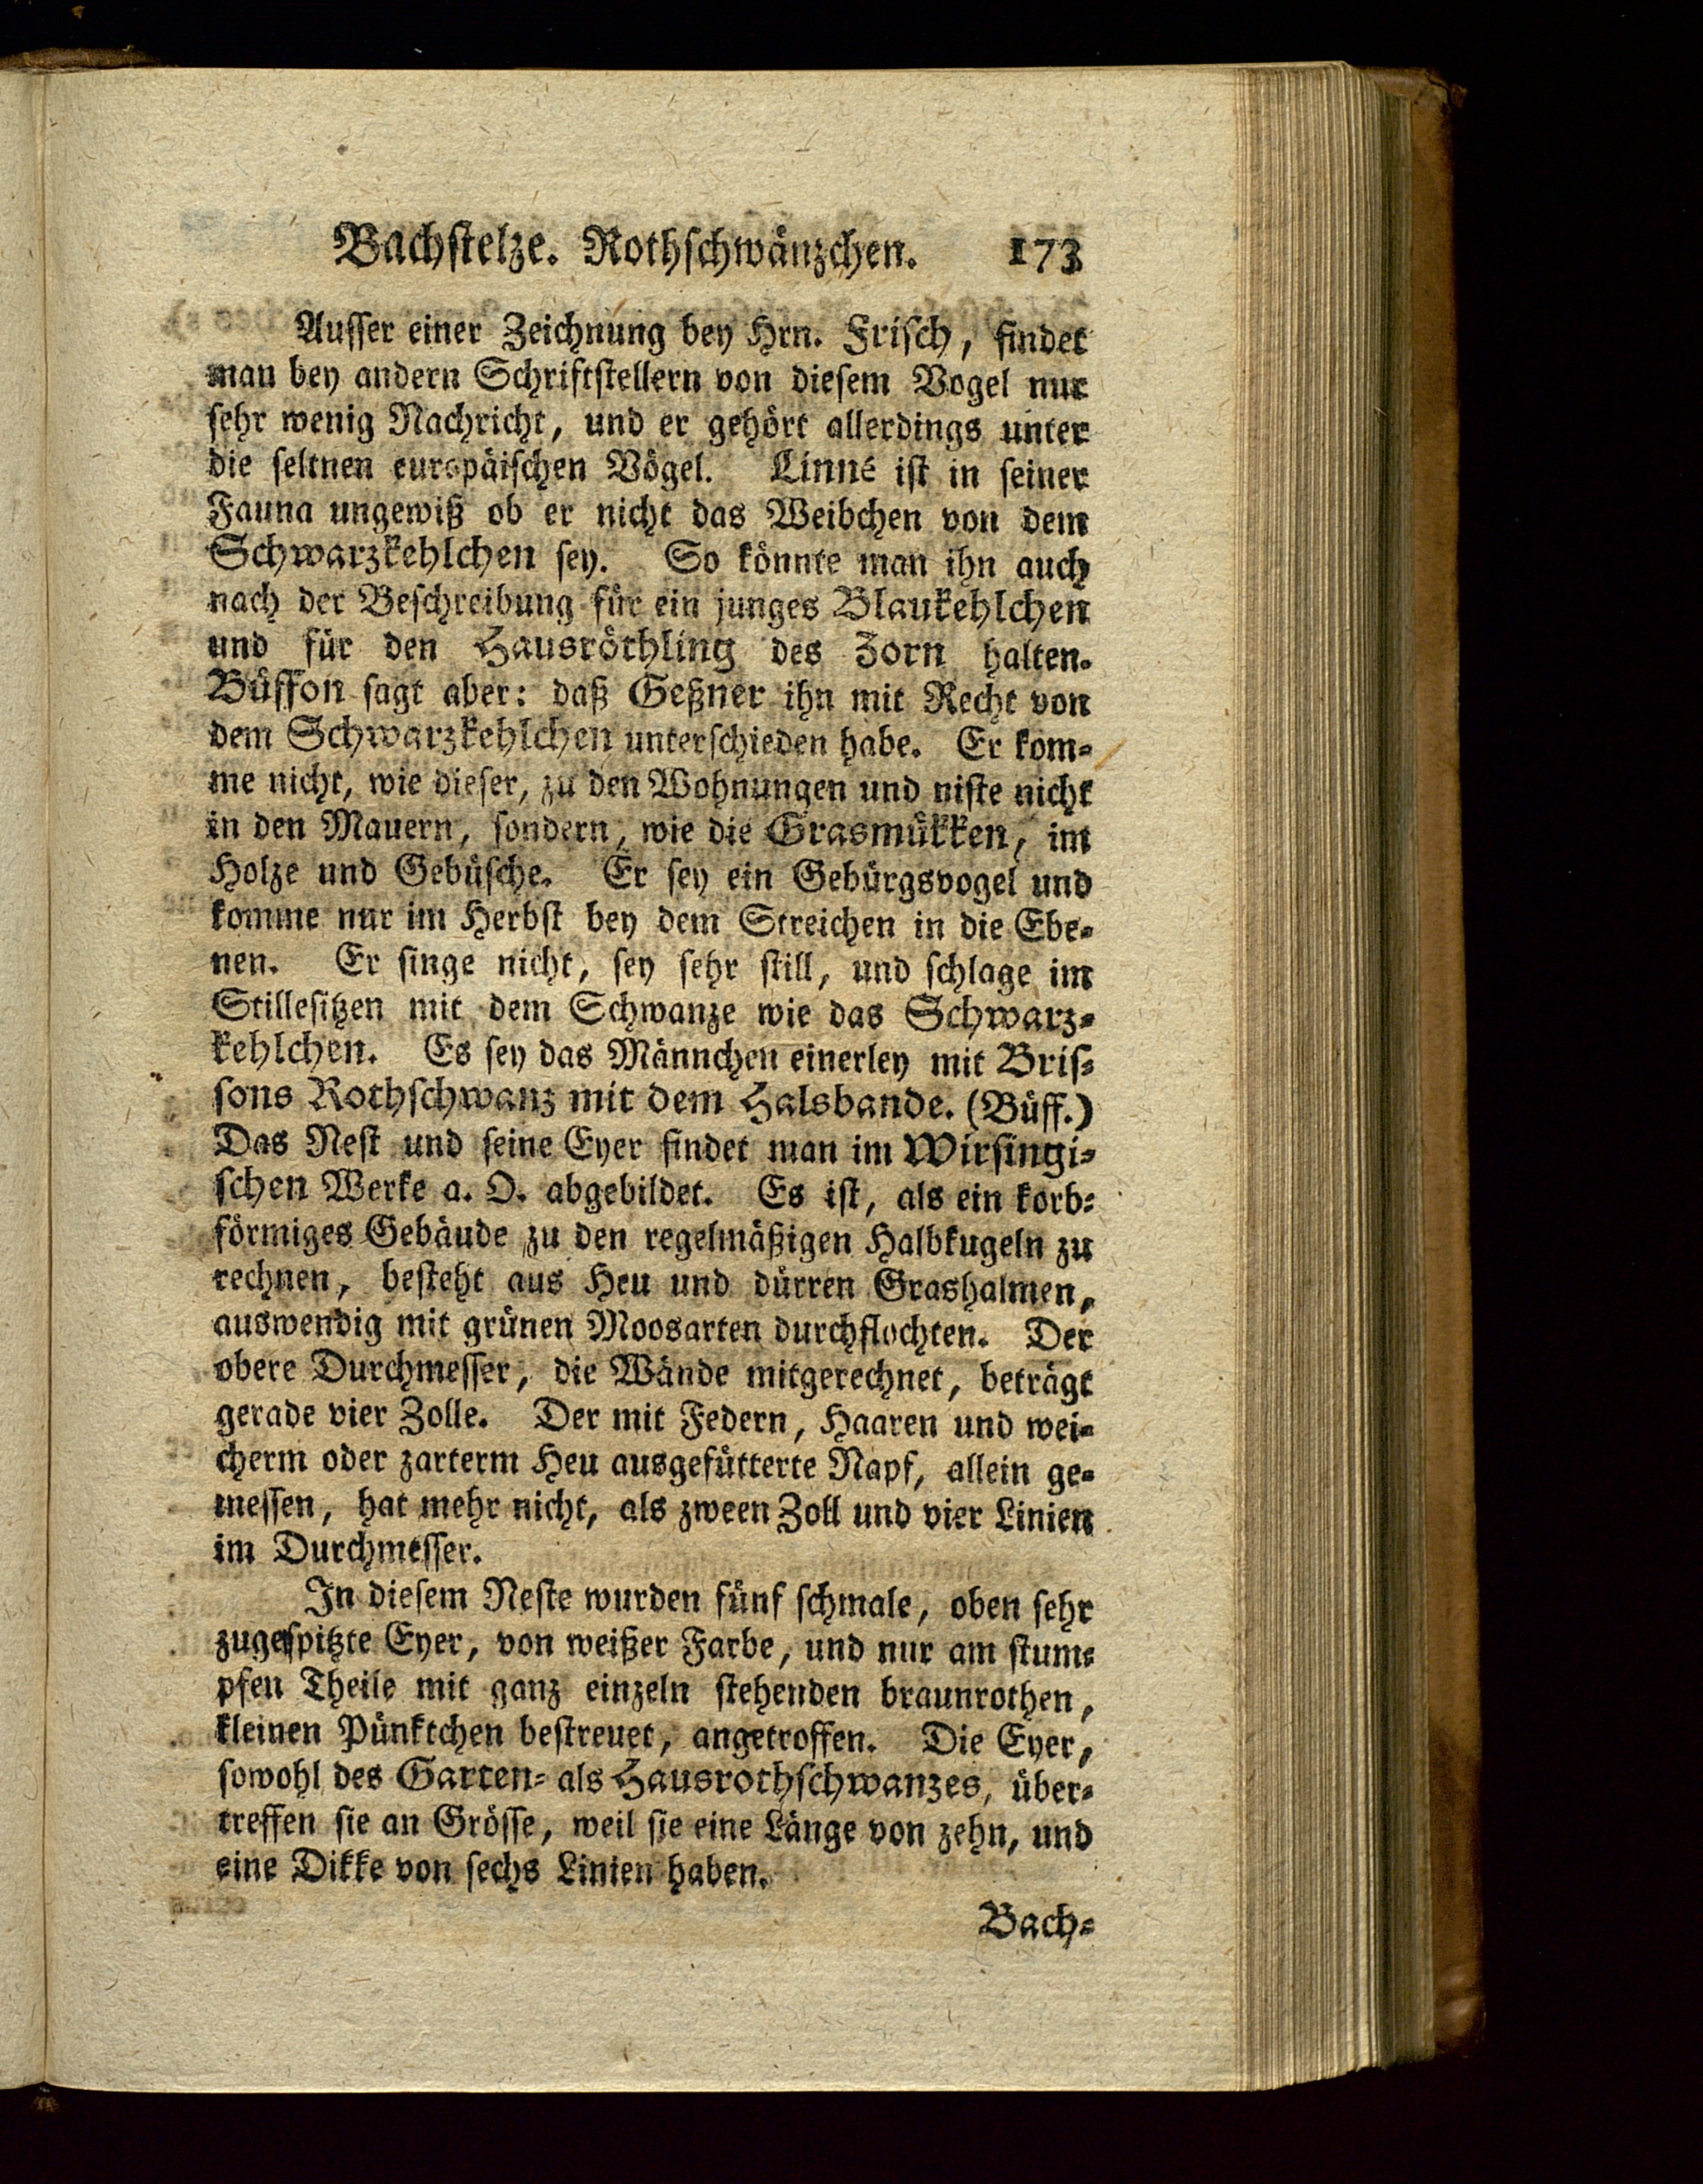 Bachstelze. Rothschwänzchen. 173
Ausser einer Zeichnung bey Hrn. Frisch, findet
man bey andern Schriftstellern von diesem Vogel nur
sehr wenig Nachricht, und er gehört allerdings unter
die seltnen europäischen Vögel. Linné ist in seiner
Fauna ungewiß ob er nicht das Weibchen von dem
Schwarzkehlchen sey. So könnte man ihn auch
nach der Beschreibung für ein junges Blaukehlchen
und für den Hausröthling des Zorn halten.
Büffon sagt aber: daß Geßner ihn mit Recht von
dem Schwarzkehlchen unterschieden habe. Er kom-
me nicht, wie dieser, zu den Wohnungen und niste nicht
in den Mauern, sondern, wie die Grasmükken, im
Holze und Gebüsche. Er sey ein Gebürgsvogel und
komme nur im Herbst bey dem Streichen in die Ebe-
nen. Er singe nicht, sey sehr still, und schlage im
Stillesitzen mit dem Schwanze wie das Schwarz-
kehlchen. Es sey das Männchen einerley mit Bris-
sons Rothschwanz mit dem Halsbande. (Büff.)
Das Nest und seine Eyer findet man im Wirsingi-
schen Werke a. O. abgebildet. Es ist, als ein korb-
förmiges Gebäude zu den regelmäßigen Halbkugeln zu
rechnen, besteht aus Heu und dürren Grashalmen,
auswendig mit grünen Moosarten durchflochten. Der
obere Durchmesser, die Wände mitgerechnet, beträgt
gerade vier Zolle. Der mit Federn, Haaren und wei-
cherm oder zarterm Heu ausgefütterte Napf, allein ge-
messen, hat mehr nicht, als zween Zoll und vier Linien
im Durchmesser.
In diesem Neste wurden fünf schmale, oben sehr
zugespitzte Eyer, von weißer Farbe, und nur am stum-
pfen Theile mit ganz einzeln stehenden braunrothen,
kleinen Pünktchen bestreuet, angetroffen. Die Eyer,
sowohl des Garten- als Hausrothschwanzes, über-
treffen sie an Grösse, weil sie eine Länge von zehn, und
eine Dikke von sechs Linien haben.
Bach-